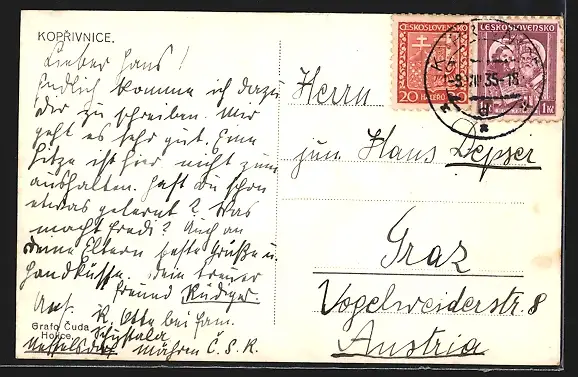 KOPŘIVNICE.
Lieber Hans!
Endlich komme ich dazu
dir zu schreiben. Mir
geht es sehr gut. Eine
Hitze ist hier nicht zum
aushalten. Hast du schon
etwas gelernt? Was
macht Fredi? Auch an
deine Eltern beste Grüße u.
Handküsse. Dein treuer
Freund Rüdiger.
R. Otto bei Fam.
Nesselsdorf Mähren Č.S.R.
Grafo Čuda
Holice
ČESKOSLOVENSKO
20 HALEŘŮ
ČESKOSLOVENSKO
1 Kč
35-18
Herrn
jun. Hans Depser
Graz
Vogelweiderstr. 8
Austria